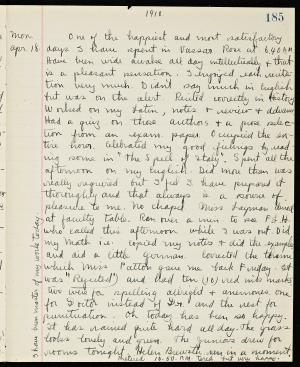 1910.
185
Mon.
Apr. 18.
One of the happiest and most satisfactory
days I have spent in Vassar. Rose at 6.40 A.M.
Have been wide awake all day intellectually & that
is a pleasant sensation. I enjoyed each recita-
tion very much. Didn't say much in English
but was on the alert. Recited correctly in History.
Worked on my Latin, notes & review & advance.
Had a quiz on these authors & a prose selec-
tion from an exam. paper. Occupied the en-
tire hour. Celebrated my good feelings by read-
ing some in "The Spell of Italy". Spent all the
afternoon on my English. Did more than was
really required but I feel I have prepared it
thoroughly and that always is a source of
pleasure to me. No chapel. Miss
at faculty table. Ran over a min to see
who called this afternoon while I was out. Did
my Math i.e. copied my notes & did the examples
and did a little German. Corrected the theme
which Miss Patton gave me back Friday. It
was "Rejected" and had ten (10) red ink marks
five were for spelling alright & anyone one
for Doctor instead of Dr. and the rest for
punctuation. Oh today has been so happy.
It has rained quite hard all day. The grass
looks lovely and green. The Juniors drew for
rooms tonight. Helen ran in a moment.
Retired 10.50 P.M. Tired but very happy.
I have been master of my work today.